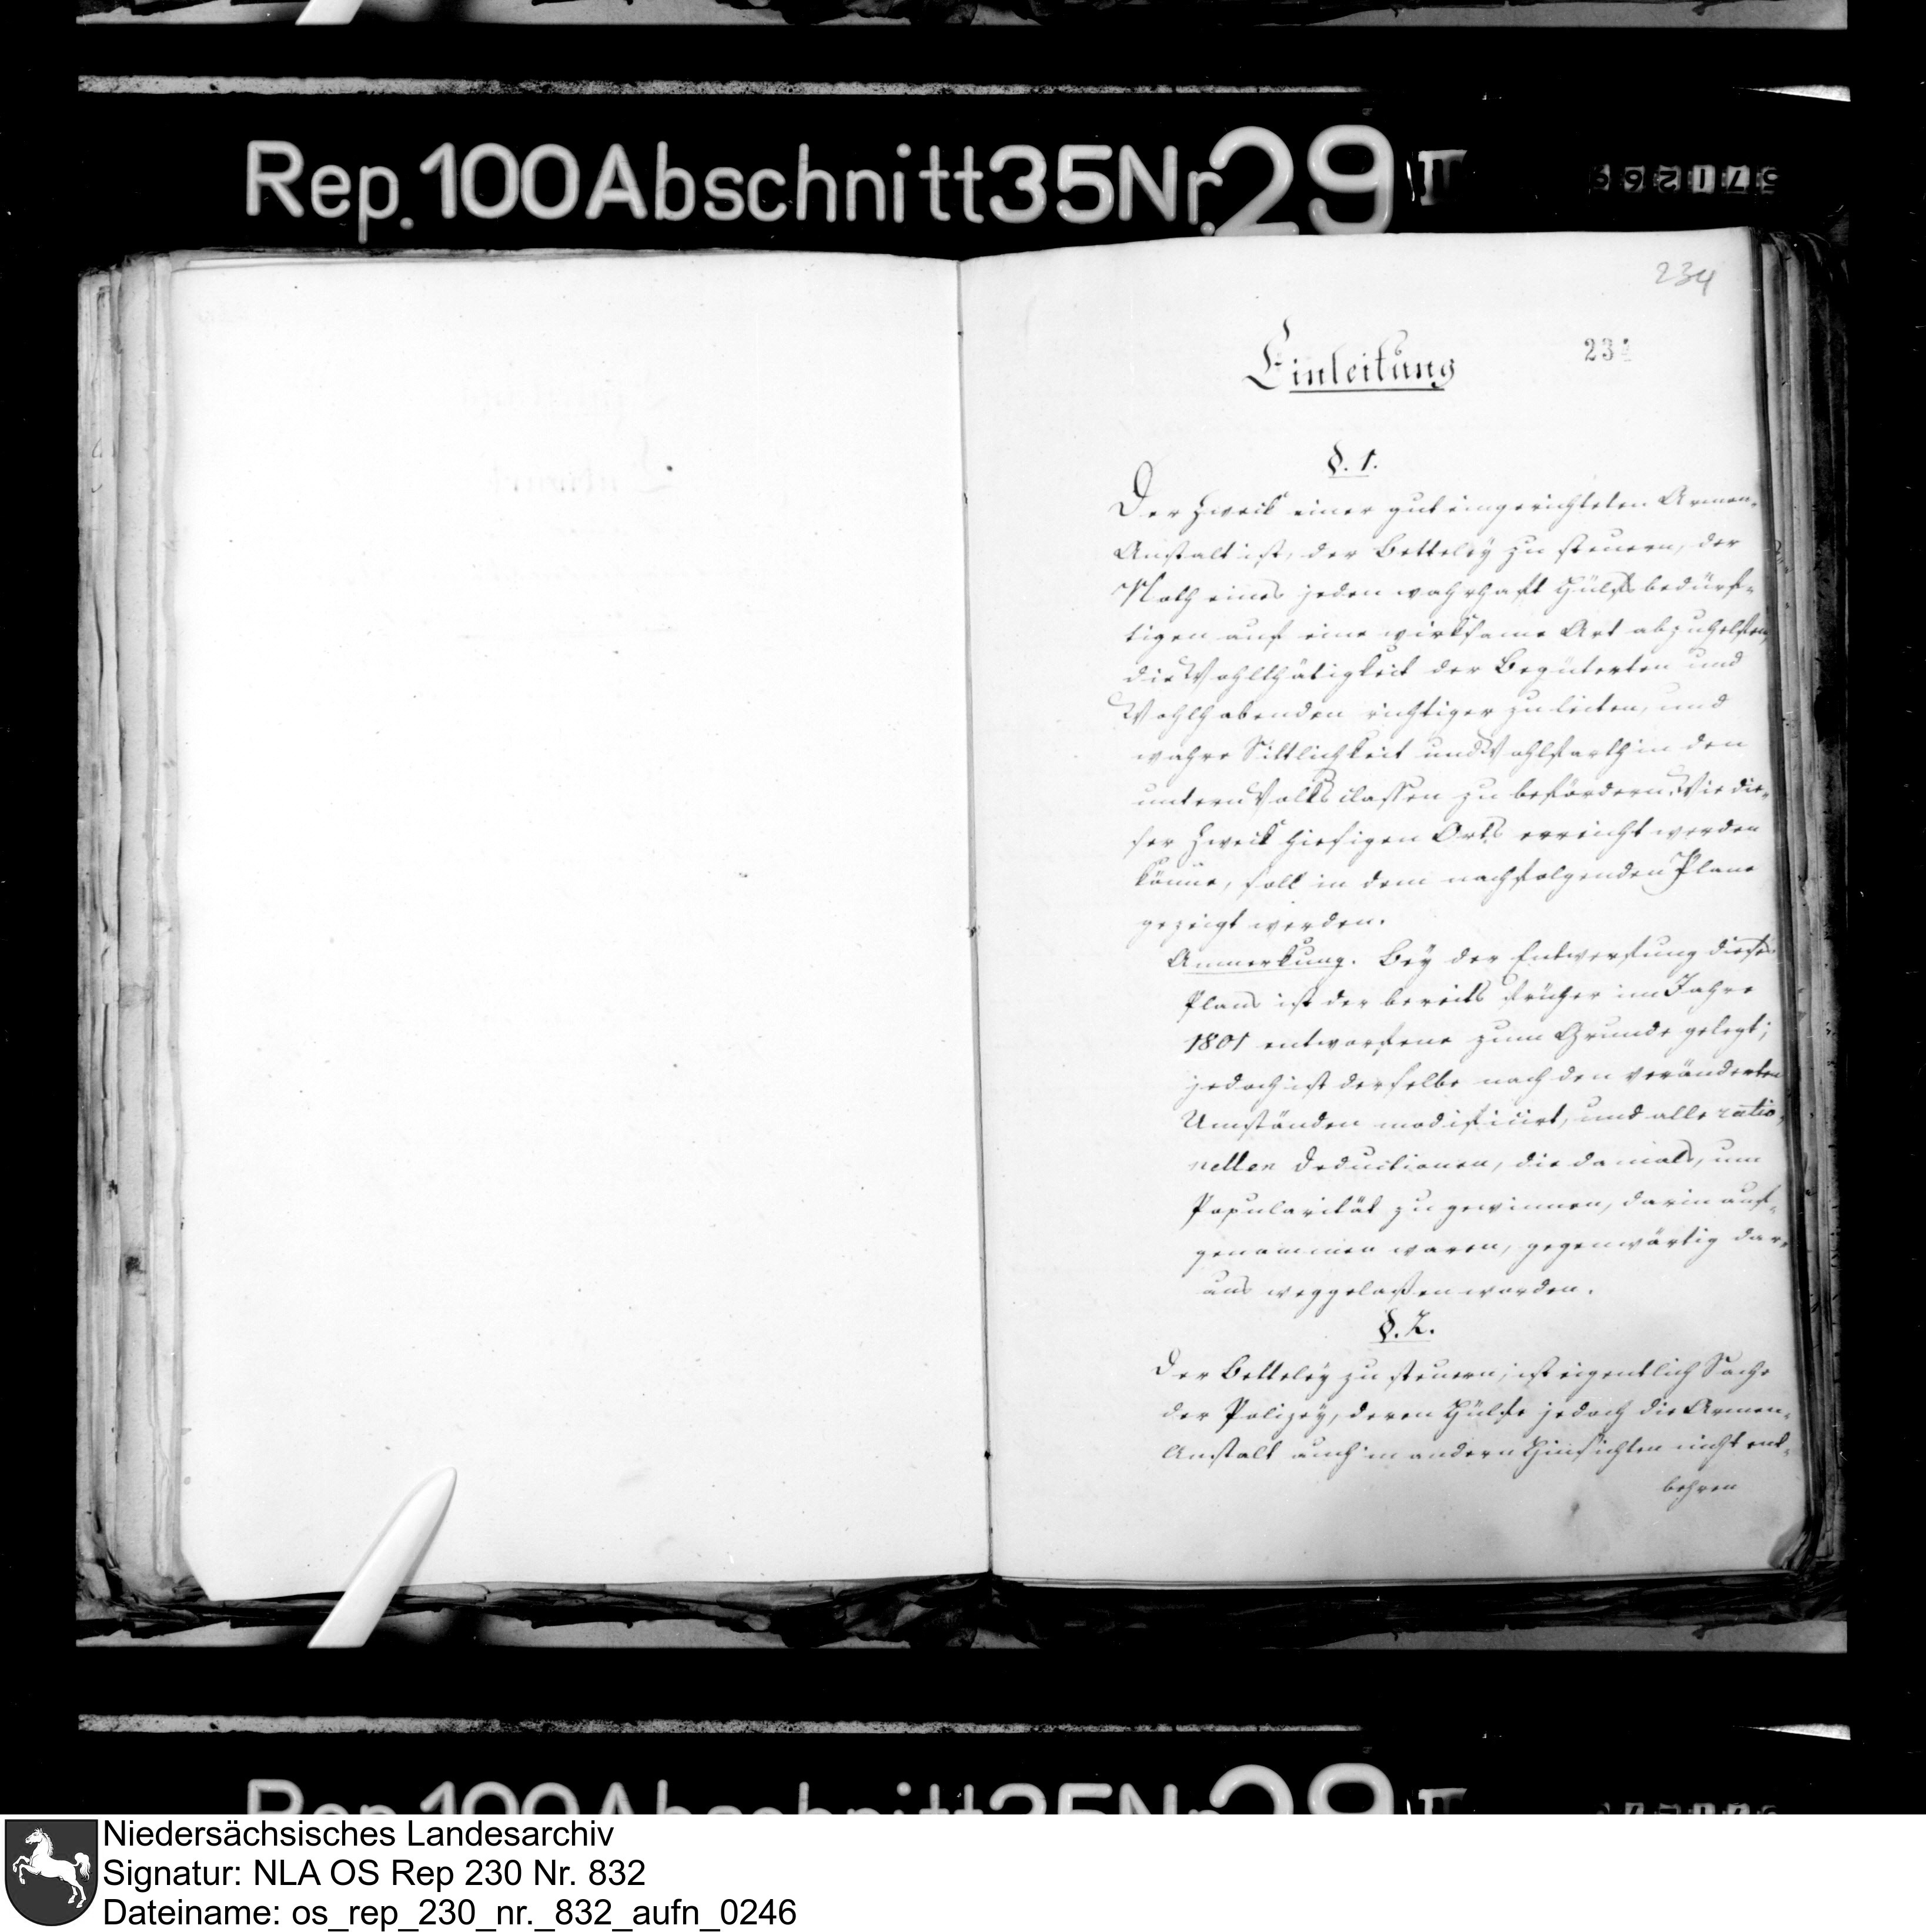 Rep. 100 Abschnitt 35 Nr. 29 II
234
Einleitung
§. 1.
Der Zweck einer gut eingerichteten Armen-
Anstalt ist, der Betteley zu steuern, der
Noth eines jeden wahrhaft Hülfsbedürf-
tigen auf eine wirksame Art abzuhelfen,
die Wohlthätigkeit der Begüterten und
Wohlhabenden richtiger zu leiten, und
wahre Sittlichkeit und Wohlfarth in den
untern Volksclassen zu befördern. Wie die-
ser Zweck hiesigen Orts erreicht werden
könne, soll in dem nachfolgenden Plane
gezeigt werden.
Anmerkung. Bey der Entwerfung dieses
Plans ist der bereits früher im Jahre
1801 entworfene zum Grunde gelegt;
jedoch ist derselbe nach den veränderten
Umständen modificirt, und alle ratio-
nellen Deductionen, die damals, um
Popularität zu gewinnen, darin auf-
genommen waren, gegenwärtig dar-
aus weggelaßen worden.
§. 2.
Der Betteley zu steuern, ist eigentlich Sache
der Polizey, deren Hülfe jedoch die Armen-
Anstalt auch in andern Hinsichten nicht ent-
behren
Niedersächsisches Landesarchiv
Signatur: NLA OS Rep 230 Nr. 832
Dateiname: os_rep_230_nr._832_aufn_0246